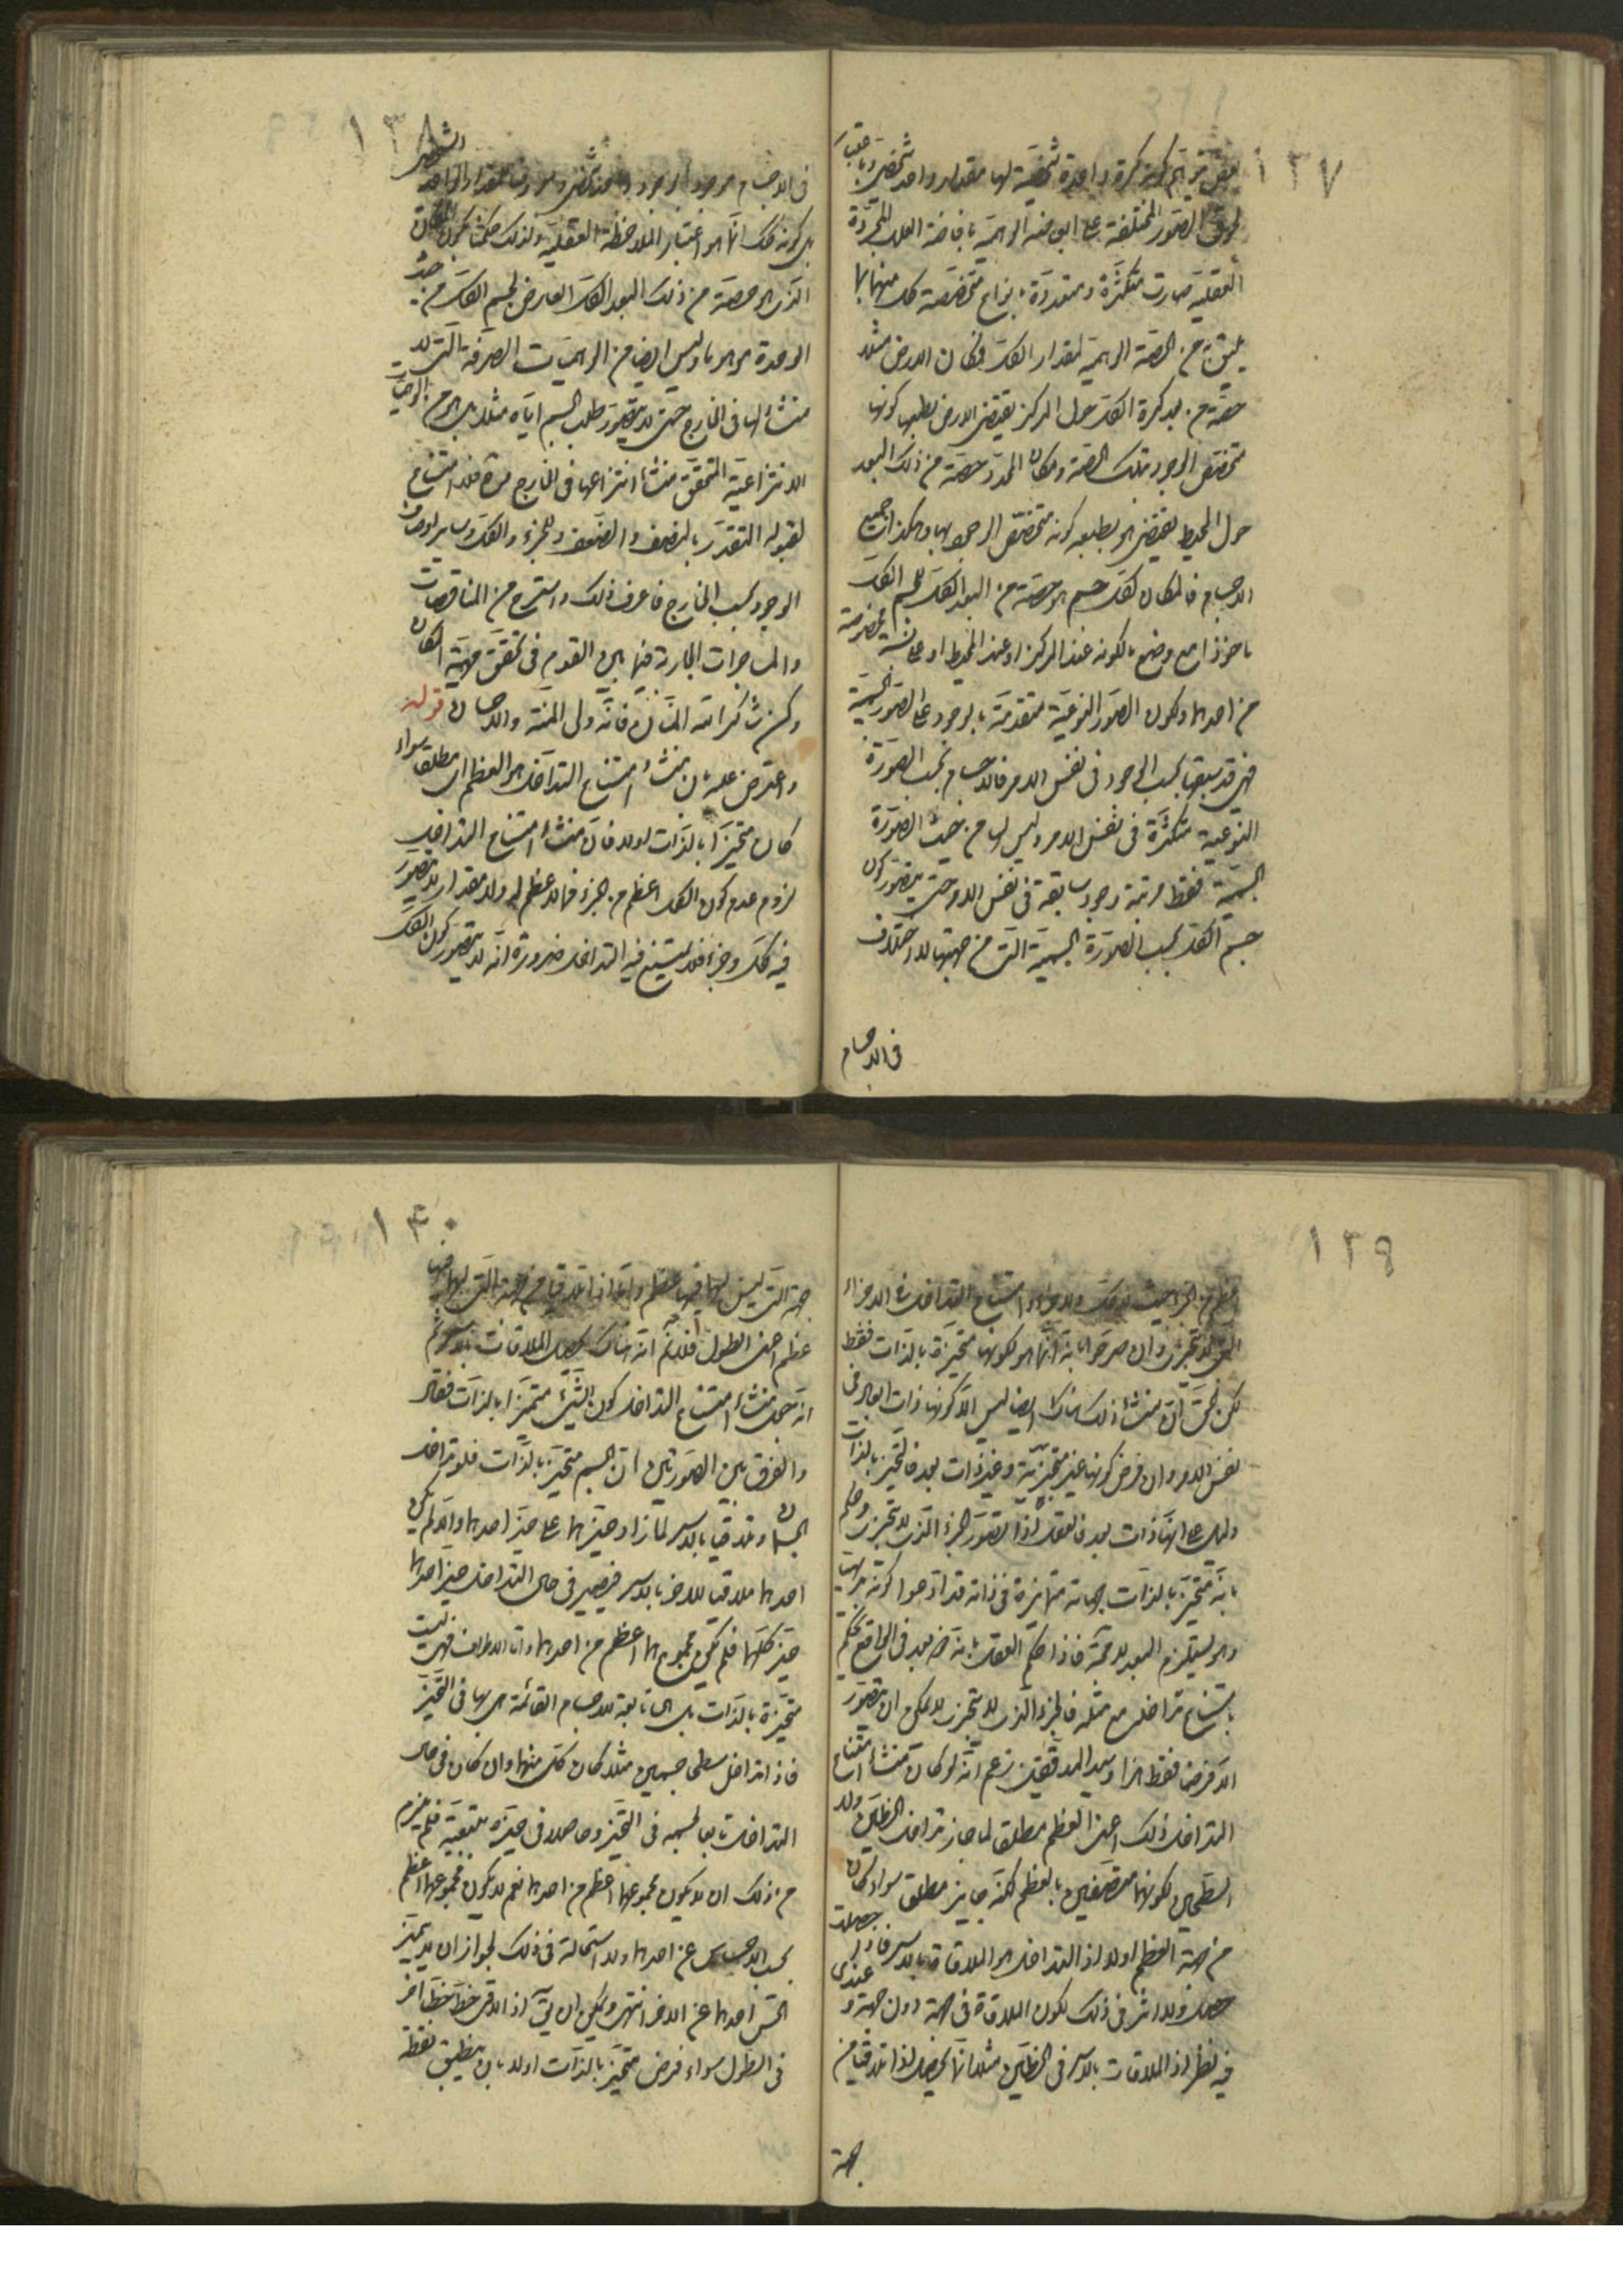 ١٣٧
كرة واحدة شخصية لها مقدار واحد شخصى
الصور المختلفة على الوهمية بافاضة العلل المجردة
العقلية صارت متكثرة ومتعددة بانواع متخصصة كل منها بما
يليق به من الحصة الوهمية لمقدار الكل فكان الارض مثلا
حصة من بعد كرة الكل حول المركز يقتضى الارض بطبعها كونها
متخصص الوجود بتلك الحصة ومكان المحدد حصة من ذلك البعد
حول المحيط يقتضى هو بطبعه كونه متخصص الوجود بها وهكذا جميع
الاجسام فالمكان لكل جسم هو حصة من البعد الكل للجسم الكل
ماخوذا مع وضع ما لكونه عند المركز او عند المحيط او على نسبة مخصوصة
من احدهما ولكون الصور النوعية متقدمة بالوجود على الصور الجسمية
فهى قد سبقتها بحسب الوجود فى نفس الامر فالاجسام بحسب الصورة
النوعية متكثرة فى نفس الامر وليس لها من حيث الصورة
الجسمية فقط مرتبة وجود سابقة فى نفس الامر حتى يتصور كون
جسم الكل بحسب الصورة الجسمية التى من جهتها لا اختلاف
فى الاجسام
١٣٨
فى الاجسام موجودا بوجود واحد شخصى
بل كونه كذلك انما هو باعتبار الملاحظة العقلية وكذلك
الذى هو حصة من ذلك البعد الكل العارض لجسم الكل من حيث
الوحدة موهوما وليس ايضا من الوهميات الصرفة التى لا
منشأ لها فى الخارج حتى لا يتصور طلب الجسم اياه مثلا بل هو من الوهميات
الانتزاعية المتحقق منشأ انتزاعها فى الخارج فلا امتناع
لقبوله التقدر بالنصف والضعف والجزء والكل وساير اوصاف
الوجود بحسب الخارج فاعرف ذلك واسترح من المناقضات
والمشاجرات الجارية فيما بين القوم فى تحقق مهية المكان
وكن شاكرا لله المنان فانه ولى المنة والاحسان قوله
واعترض عليه بان منشأ امتناع التداخل هو العظم مطلقا سواء
كان متحيزا بالذات اولا فان منشأ امتناع التداخل
لزوم عدم كون الكل اعظم من الجزء فما لا عظم له ولا مقدار لا يتصور
فيه كل وجزء فلا يمتنع فيه التداخل ضرورة انه لا يتصور كون الكل
١٣٩
اعظم من الجزء حيث لا كل ولا جزء وامتناع التداخل فى الاجزاء
التى لا تتجزى وان صرحوا بانه انما هو لكونها متحيزة بالذات فقط
لكن الحق ان منشأ ذلك هناك ايضا ليس الا كونها ذات ابعاد فى
نفس الامر وان فرض كونها غير متجزية وغير ذات بعد فالتحيز بالذات
دليل على انها ذات بعد فالعقل اذا تصور الجزء الذى لا يتجزى وحكم
بانه متحيز بالذات بجهات متمايزة فى ذاته قد ادعوا كونه بديهيا
وهو يستلزم البعد لا محة فاذا حكم العقل بانه ذو بعد فى الواقع يحكم
بامتناع تداخله مع مثله فالجزء الذى لا يتجزى لا يمكن ان يتصور
الا فرضا فقط هذا وسيد المدققين زعم انه لو كان منشأ امتناع
التداخل ذلك اعنى العظم مطلقا لما جاز تداخل الخطين ولا
السطحين لكونهما متصفين بالعظم لكنه جايز مطلقا سواء كان
من جهة العظم اولا اذ التداخل هو الملاقاة بالاسر
حصل ولا اثر فى ذلك لكون الملاقاة فى جهة دون جهة وعندى
فيه نظر اذ الملاقات بالاسر فى الخطين مثلا انما يحصل اذا تلاقيا من
جهة
١٤٠
جهة التى ليس لها فيها عظم واما اذا تلاقيا من جهة التى لها فيها
عظم اعنى الطول فلا نم انه هناك يحصل الملاقات بالاسر ثم
انه جعل منشأ امتناع التداخل كون الشئ متحيزا بالذات فقال
والفرق بين الصورتين ان الجسم متحيز بالذات فلو تداخل
الجسمان وتلاقيا بالاسر لما زاد حيزهما على حيز احدهما والا لم يكن
احدهما ملاقيا للاخر بالاسر فيصير فى حال التداخل حيز احدهما
حيز كليهما فلم يكن مجموعهما اعظم من احدهما واما الاطراف فهى ليست
متحيزة بالذات بل هى تابعة للاجسام القائمة هى بها فى التحيز
فاذا تداخل سطحا جسمين مثلا كان كل منهما وان كان فى حال
التداخل تابعا لجسمه فى التحيز وحاصلا فى حيزه بتبعيته فلم يلزم
من ذلك ان لا يكون مجموعهما اعظم من احدهما نعم لا يكون مجموعهما اعظم
بحسب الاحساس عن احدهما ولا استحالة فى ذلك لجواز ان لا يميز
الحس احدهما عن الاخر انتهى ويمكن ان يق اذا لاقى خط خطا اخر
فى الطول سواء فرض متحيزا بالذات اولا بان ينطبق نقطة